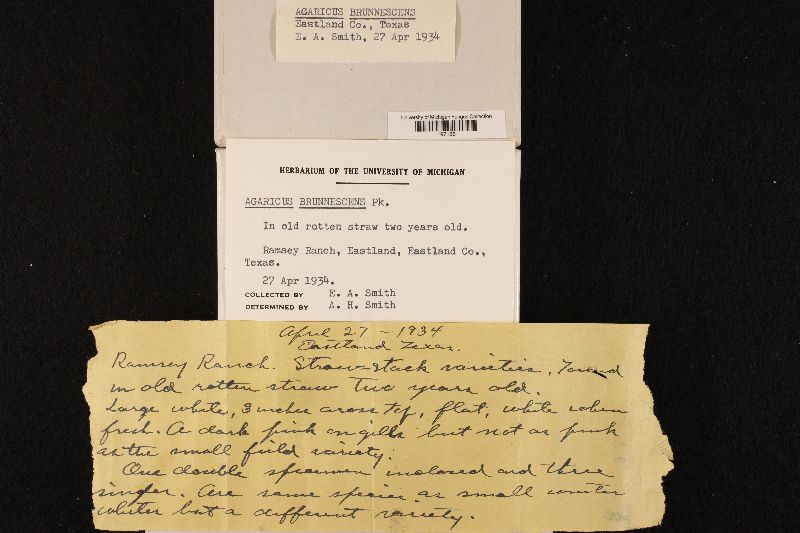 AGARICUS BRUNNESCENS
Eastland Co., Texas
E. A. Smith, 27 Apr 1934
University of Michigan Fungus Collection
HERBARIUM OF THE UNIVERSITY OF MICHIGAN
AGARICUS BRUNNESCENS Pk.
In old rotten straw two years old.
Ramsey Ranch, Eastland, Eastland Co.,
Texas.
27 Apr 1934.
COLLECTED BY E. A. Smith
DETERMINED BY A. H. Smith
April 27 - 1934
Eastland Texas.
Ramsey Ranch. Straw-stack varieties, Found
in old rotten straw two years old.
Large white, 3 inches across top, flat, white when
fresh. A dark pink on gills but not as pink
as the small field variety.
One double specimen inclosed and three
singles. Are same species as small
whites but a different variety.